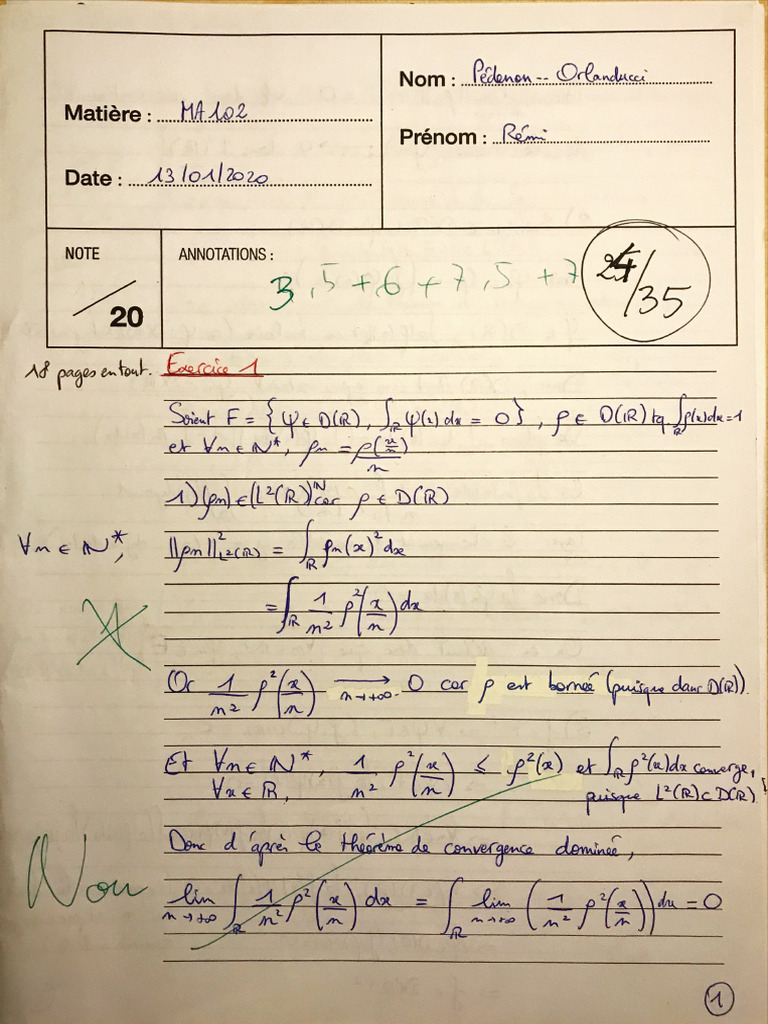 Matière : MA102
Nom : Pédenon--Orlanducci
Prénom : Rémi
Date : 13/01/2020
NOTE
/20
ANNOTATIONS :
3,5 + 6 + 7,5 + 7
24/35
18 pages en tout. Exercice 1
Soient F = {ψ ∈ D(ℝ), ∫_ℝ ψ(x)dx = 0}, ρ ∈ D(ℝ) tq ∫_ℝ ρ(x)dx=1
et ∀n ∈ ℕ*, ρn = ρ(x/n)/n
1) (ρn) ∈ (L²(ℝ))^ℕ car ρ ∈ D(ℝ)
∀n ∈ ℕ*, ||ρn||²_L²(ℝ) = ∫_ℝ ρn(x)²dx
= ∫_ℝ 1/n² ρ²(x/n)dx
Or 1/n² ρ²(x/n) ⟶_{n→+∞} 0 car ρ est bornée (puisque dans D(ℝ)).
Et ∀n ∈ ℕ*, 1/n² ρ²(x/n) ≤ ρ²(x) et ∫_ℝ ρ²(x)dx converge,
∀x ∈ ℝ, puisque L²(ℝ) ⊂ D(ℝ)
Donc d'après le théorème de convergence dominée,
Non
lim_{n→+∞} ∫_ℝ 1/n² ρ²(x/n) dx = ∫_ℝ lim_{n→+∞} (1/n² ρ²(x/n)) dx = 0
1